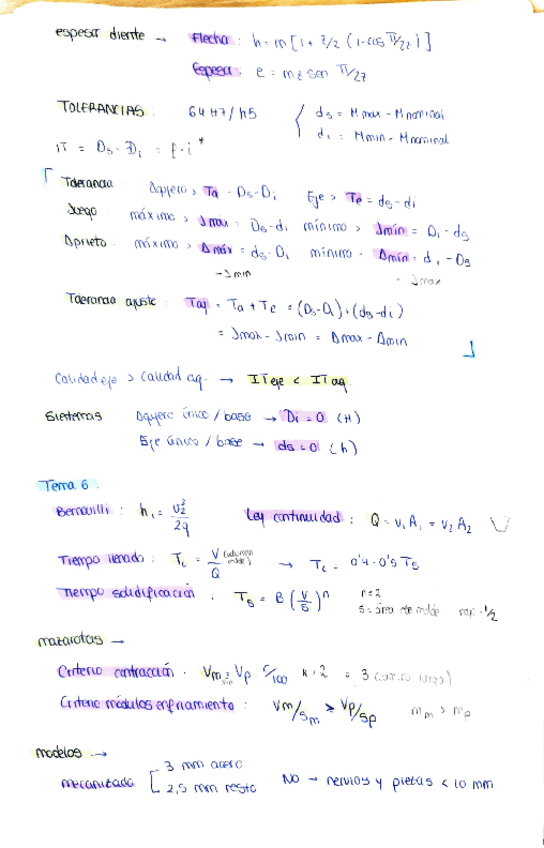 espesor diente → Flecha : h = m [1 + z/2 (1-cos π/2z)]
Espesor : e = mz sen π/2z
TOLERANCIAS : 64 H7/h5 { ds = Mmax - Mnominal
di = Mmin - Mnominal
IT = Ds - Di = f · i *
Tolerancia Agujero > Ta = Ds-Di Eje > Te = ds-di
Juego máximo > Jmax = Ds-di mínimo > Jmin = Di - ds
Aprieto : máximo > Amáx = ds-Di mínimo - Amín = di - Ds
-Jmin - Jmax
Tolerancia ajuste : Taj = Ta + Te = (Ds-Di) + (ds-di)
= Jmax - Jmin = Amax - Amin
Calidad eje > calidad ag. → ITeje < ITag.
Sistemas Agujero único / base → Di = 0 (H)
Eje único / base → ds = 0 (h)
Tema 6 :
Bernouilli : h1 = v2²/2g Ley continuidad : Q = v1 A1 = v2 A2
Tiempo llenado : TL = V/Q (volumen molde) → TL = 0'4 - 0'5 Ts
Tiempo solidificación : Ts = B (V/S)^n n = 2
S = área de molde
mazarotas →
Criterio contracción · Vm = Vp · C/100 · k · 2 = 3
Criterio módulos enfriamiento : Vm/Sm > Vp/Sp mm > mp
modelos →
mecanizado [ 3 mm acero
2,5 mm resto NO → nervios y piezas < 10 mm